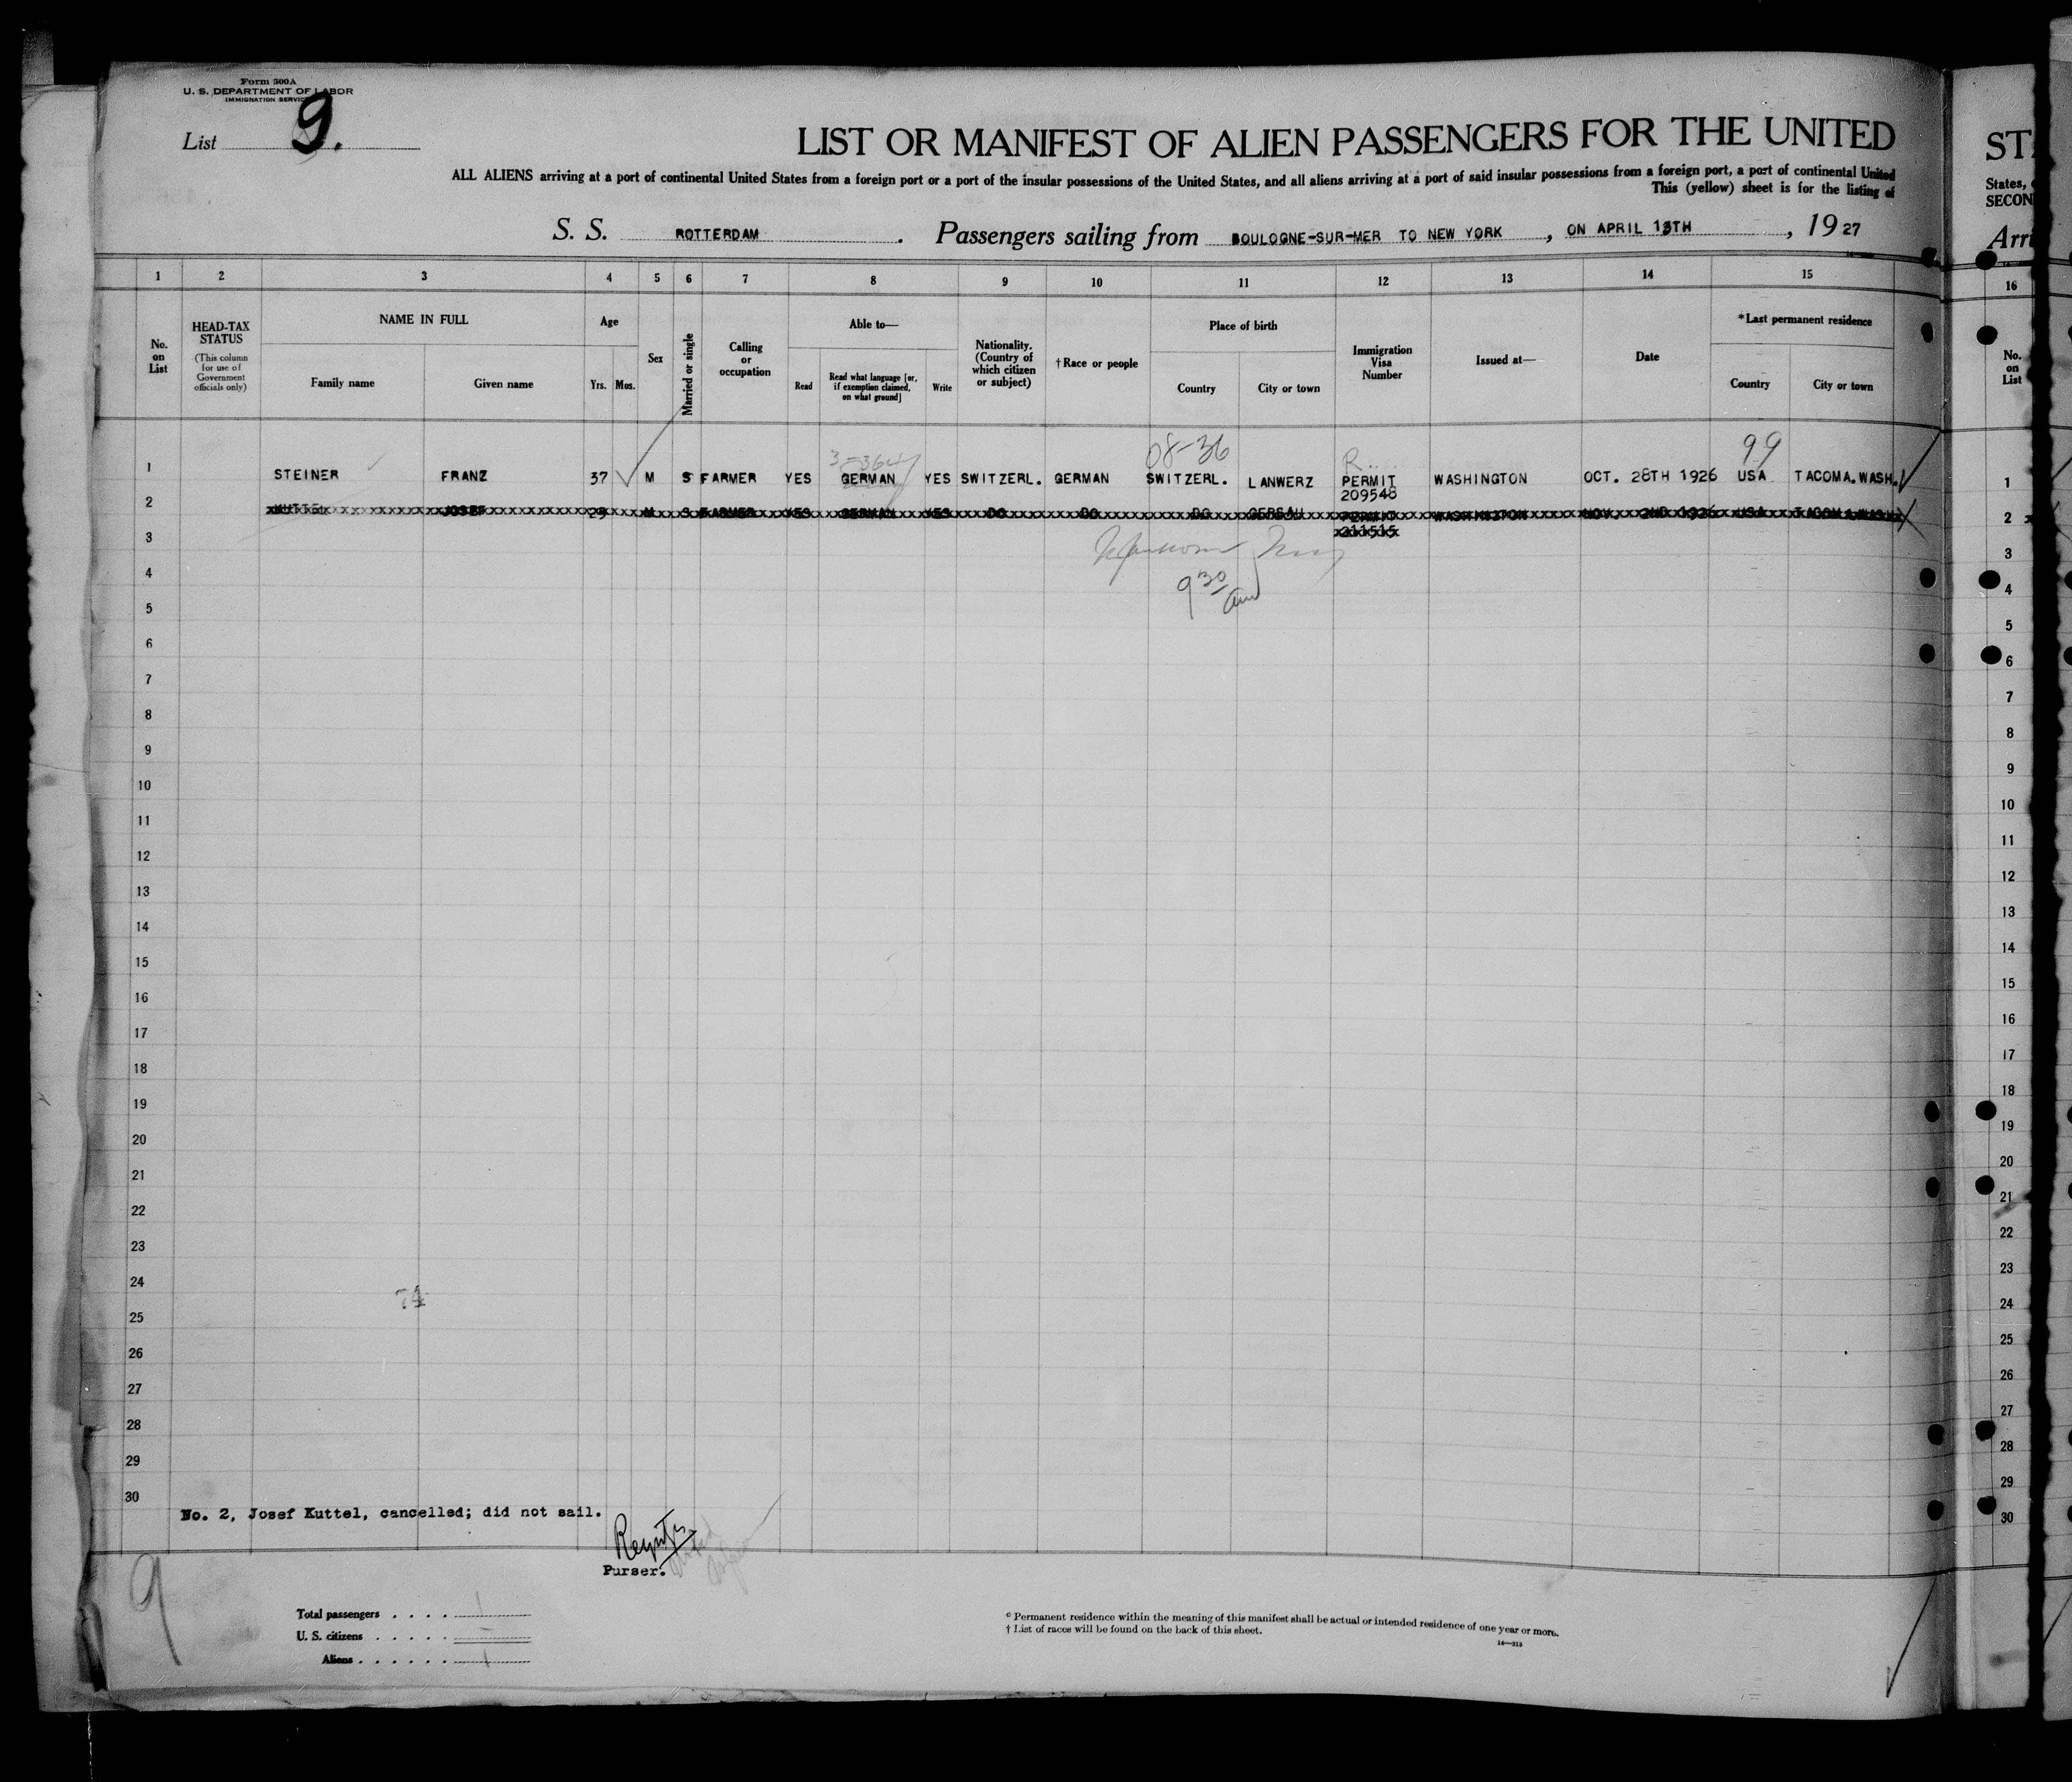 Form 500A
U. S. DEPARTMENT OF LABOR
IMMIGRATION SERVICE
List 9.
LIST OR MANIFEST OF ALIEN PASSENGERS FOR THE UNITED
ALL ALIENS arriving at a port of continental United States from a foreign port or a port of the insular possessions of the United States, and all aliens arriving at a port of said insular possessions from a foreign port, a port of continental United
This (yellow) sheet is for the listing of
S. S. ROTTERDAM. Passengers sailing from BOULOGNE-SUR-MER TO NEW YORK, ON APRIL 13TH, 1927
1 2 3 4 5 6 7 8 9 10 11 12 13 14 15
No. on List
HEAD-TAX STATUS
(This column for use of Government officials only)
NAME IN FULL
Family name Given name
Age
Yrs. Mos.
Sex
Married or single
Calling or occupation
Able to—
Read
Read what language [or, if exemption claimed, on what ground]
Write
Nationality. (Country of which citizen or subject)
†Race or people
Place of birth
Country City or town
Immigration Visa Number
Issued at—
Date
*Last permanent residence
Country City or town
08-36 99
1 STEINER FRANZ 37 M S FARMER YES GERMAN YES SWITZERL. GERMAN SWITZERL. LANWERZ PERMIT 209548 WASHINGTON OCT. 28TH 1926 USA TACOMA.WASH.
2 JOSEF 29 M S FARMER YES GERMAN YES DO DO DO GERSAU PERMIT 211515 WASHINGTON NOV. 2ND 1926 USA TACOMA.WASH
3
9 30 am
4
5
6
7
8
9
10
11
12
13
14
15
16
17
18
19
20
21
22
23
24
74
25
26
27
28
29
30
No. 2, Josef Kuttel, cancelled; did not sail.
Purser.
9
Total passengers . . . . 1
U. S. citizens . . . . . –
Aliens . . . . . . 1
* Permanent residence within the meaning of this manifest shall be actual or intended residence of one year or more.
† List of races will be found on the back of this sheet.
14—313
STA
States,
SECON
Arri
16
No. on List
1
2
3
4
5
6
7
8
9
10
11
12
13
14
15
16
17
18
19
20
21
22
23
24
25
26
27
28
29
30